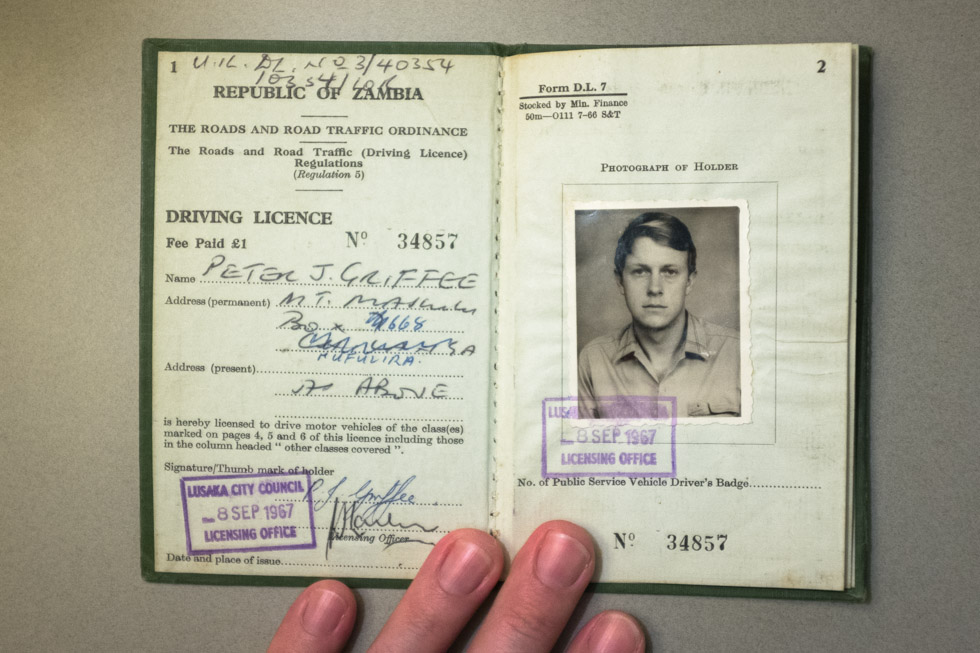 1 U.K. DL. No 3/40354
10354/
REPUBLIC OF ZAMBIA
THE ROADS AND ROAD TRAFFIC ORDINANCE
The Roads and Road Traffic (Driving Licence)
Regulations
(Regulation 5)
DRIVING LICENCE
Fee Paid £1 No 34857
Name PETER J. GRIFFEE
Address (permanent) M.T.
Box 1668
MUFULIRA.
Address (present)
AS ABOVE
is hereby licensed to drive motor vehicles of the class(es)
marked on pages 4, 5 and 6 of this licence including those
in the column headed " other classes covered ".
Signature/Thumb mark of holder
P J Griffee
LUSAKA CITY COUNCIL
8 SEP 1967
LICENSING OFFICE
Licensing Officer
Date and place of issue
2
Form D.L. 7
Stocked by Min. Finance
50m—O111 7-66 S&T
PHOTOGRAPH OF HOLDER
LUSAKA CITY COUNCIL
8 SEP 1967
LICENSING OFFICE
No. of Public Service Vehicle Driver's Badge
No 34857